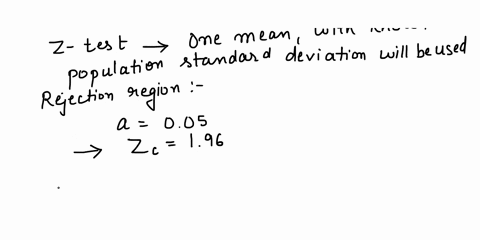 Z-test → One mean, with
population standard deviation will be used
Rejection region :-
a = 0.05
→ Zc = 1.96